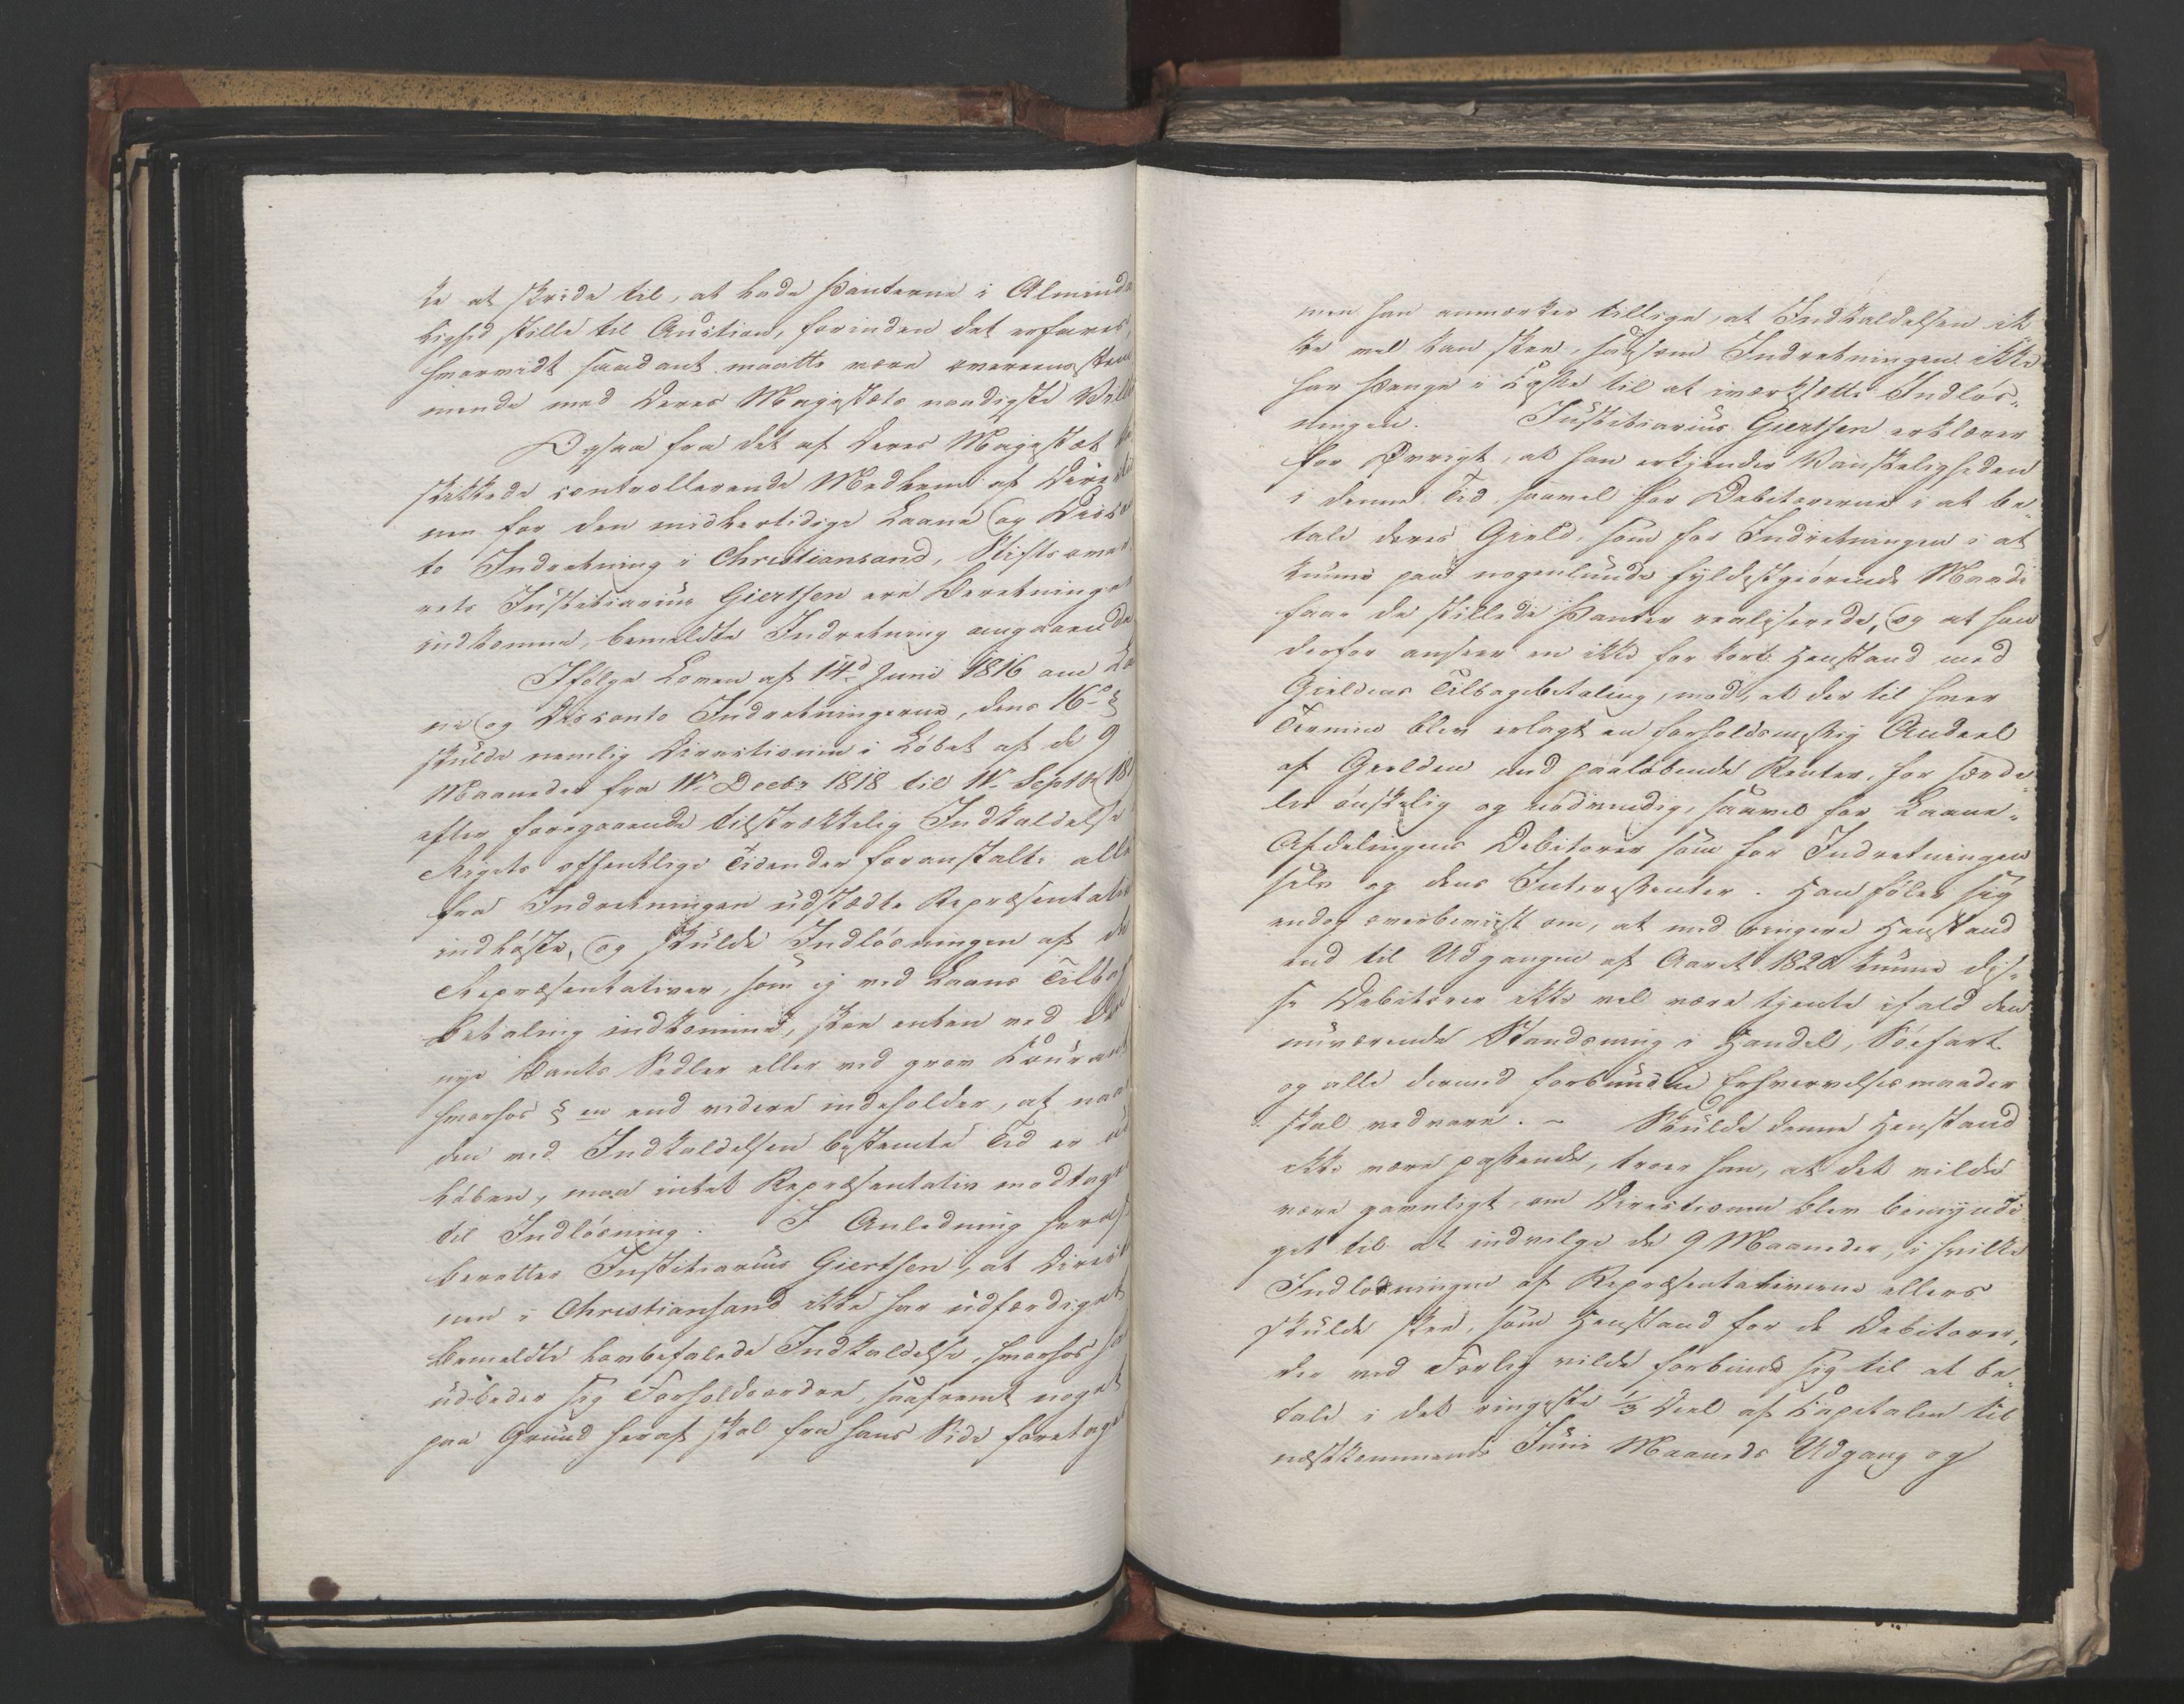 ke at skride til, at lade Panterne i Alminde
lighed stille til Auction, forinden det erfares,
hvorvidt saadant maatte være overeensstem
mende med Deres Majestæts naadigste Villie
Ogsaa fra det af Deres Majestæt be
skikkede controllerende Medlem af Directio
nen for den midlertidige Laane og Disco
to Indretning i Christiansand, Stiftsover
rets Justitiarius Giertsen ere Beretninger
indkomne, bemeldte Indretning angaaende
Ifølge Loven af 14d Juni 1816 om Laa
ne og Disconto Indretningerne, dens 16de §
skulde nemlig Directionen i Løbet af de 9
Maaneder fra 1te Decbr 1818 til 1te Septbr 181
efter foregaaende tilstrækkelig Indkaldelse
Rigets offentlige Tidender foranstalte alle
fra Indretningen udstædte Repræsentativer
indløste, og skulde Indløsningen af de
Repræsentativer, som ej ved Laans Tilbage
betaling indkomme, skee enten ved
nye Banks Sedler eller ved grov Courant
hvorhos § en end videre indeholder, at naar
den ved Indkaldelsen bestemte Tid er ud
løben, maa intet Repræsentativ modtages
til Indløsning. I Anledning heraf
beretter Justitiarius Giertsen, at Directio
nen i Christiansand ikke har udfærdiget
bemeldte lovbefalede Indkaldelse, hvorhos han
udbeder sig Forholdsordre, saafremt noget
paa Grund heraf skal fra hans Side foretages
men han anmærker tillige, at Indkaldelsen ik
ke vel kan skee, saasom Indretningen ikke
har Penge i Kasse til at iværksætte Indløs-
ningen. Justitiarius Giertsen erklærer
for Øvrigt, at han erkjender Vanskeligheden
i denne Tid, saavel for Debitorerne i at be-
tale deres Gield, som for Indretningen i at
kunne paa nogenlunde fyldestgiørende Maade
faae de stillede Panter realiserede, og at han
derfor anseer en ikke for kort Henstand med
Gieldens Tilbagebetaling, mod, at der til hver
Termin blev erlagt en forholdsmæssig Andeel
af Gielden med paaløbende Renter, for særde-
les ønskelig og nødvendig, saavel for Laane-
Afdelingens Debitorer som for Indretningen
selv og dens Interessenter. Han føler sig
endog overbeviist om, at med ringere Henstand
end til Udgangen af Aaret 1820 kunne dis-
se Debitorer ikke vel være tjente ifald den
nuværende Standsning i Handel, Søefart
og alle dermed forbundne Erhvervelsesmaader
skal vedvare. - Skulde denne Henstand
ikke være passende, troer han, at det vilde
være gavnligt, om Directionen blev bemyndi-
get til at indvilge de 9 Maaneder, i hvilke
Indløsningen af Repræsentativerne ellers
skulde skee, som Henstand for de Debitorer,
der ved Forlig vilde forbinde sig til at be-
tale i det ringeste 1/3 Deel af Capitalen til
næstkommende Juni Maaneds Udgang og